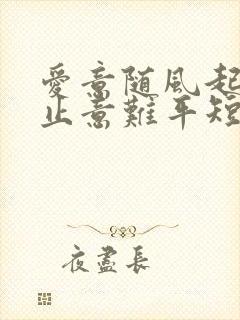 愛意随風起
止意難平短
夜盡長